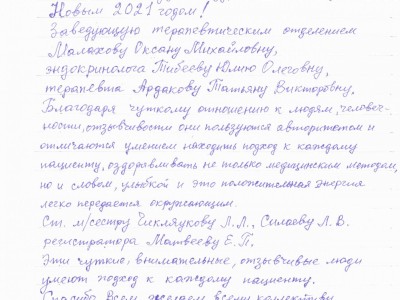 Новым 2021 годом!
Заведующую терапевтическим отделением
Малахову Оксану Михайловну,
эндокринолога Тибееву Юлию Олеговну,
терапевта Ардакову Татьяну Викторовну,
Благодаря чуткому отношению к людям, человеч-
ности, отзывчивости они пользуются авторитетом и
отличаются умением находить подход к каждому
пациенту, оздоравливать не только медицинским методом,
но и словом, улыбкой и это положительная энергия
легко передается окружающим.
Ст. м/сестру Чикляукову Л.Л., Силаеву Л.В.
регистратора Матвееву Е.П.
Эти чуткие, внимательные, отзывчивые люди
умеют подход к каждому пациенту.
Спасибо Всем желаем всему коллективу